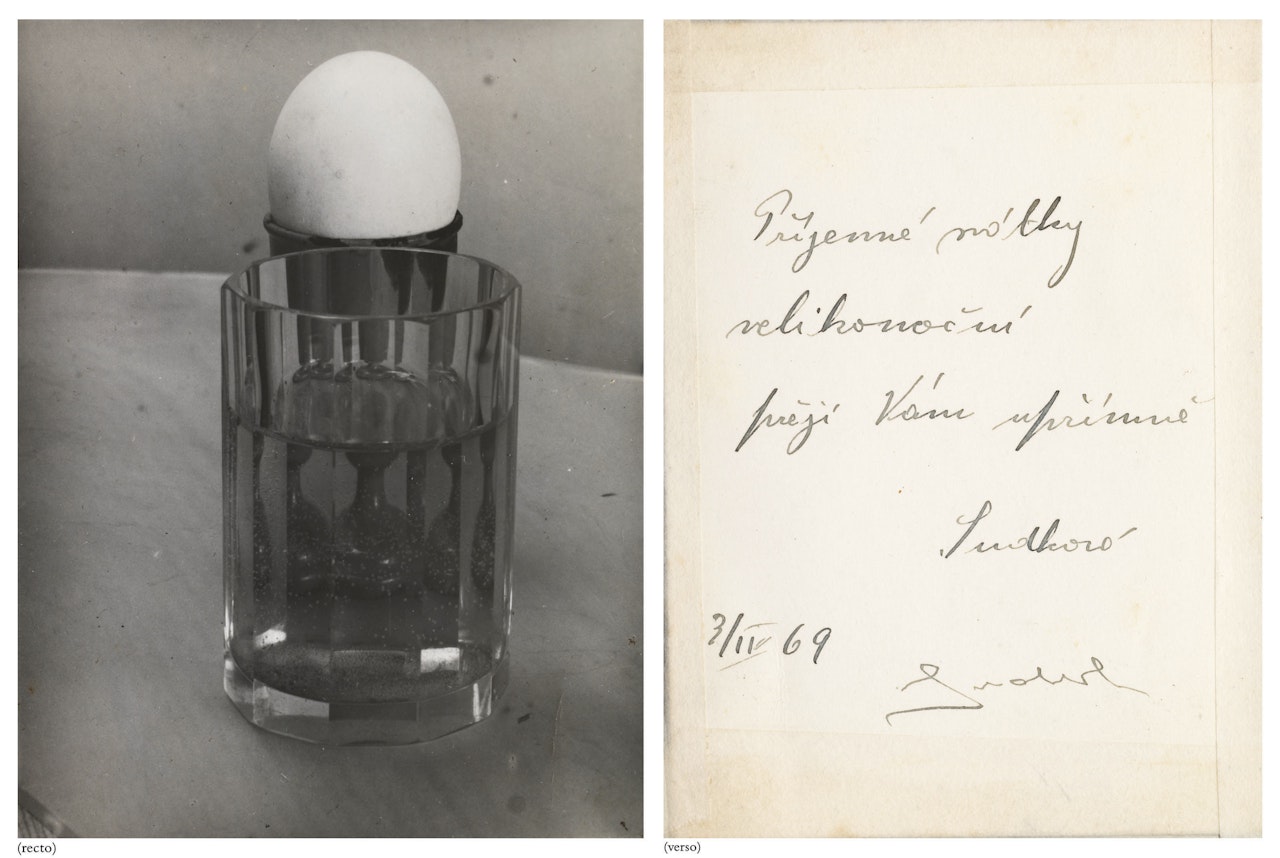 (recto)
Příjemné svátky
velikonoční
přejí Vám upřímně
Sudkovó
3/IV 69
Sudek
(verso)